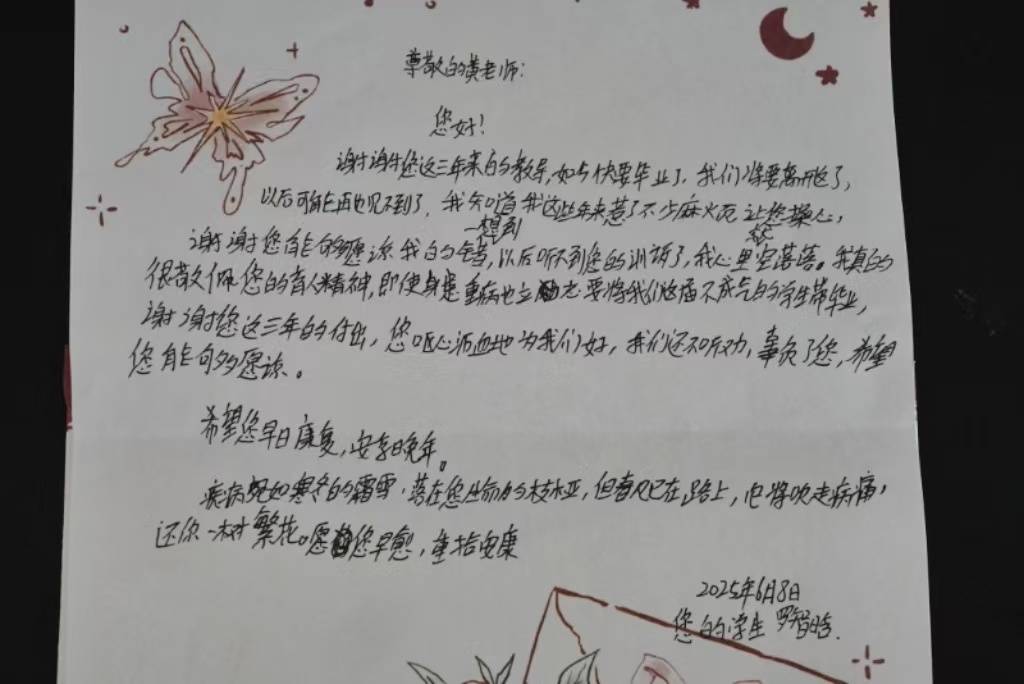 尊敬的黄老师：
您好！
谢谢您这三年来的教导，如今快要毕业了，我们将要离开这了，
以后可能再也见不到了，我知道我这些年来惹了不少麻烦 让您操心，
谢谢您能够愿谅我的错，一想到以后听不到您的训话了，我心里空落落。我真的
很敬佩您的育人精神，即使身患重病也立志要将我们这届不成气的学生带毕业，
谢谢您这三年的付出，您呕心沥血地为我们好，我们还不听劝，辜负了您，希望
您能够多愿谅。
希望您早日康复，安享晚年。
疾病宛如寒冬的霜雪，落在您生命的枝桠，但春风已在路上，也将吹走病痛，
还你一树繁花。愿您早愈，重拾安康
2025年6月8日
您的学生 罗智皓.